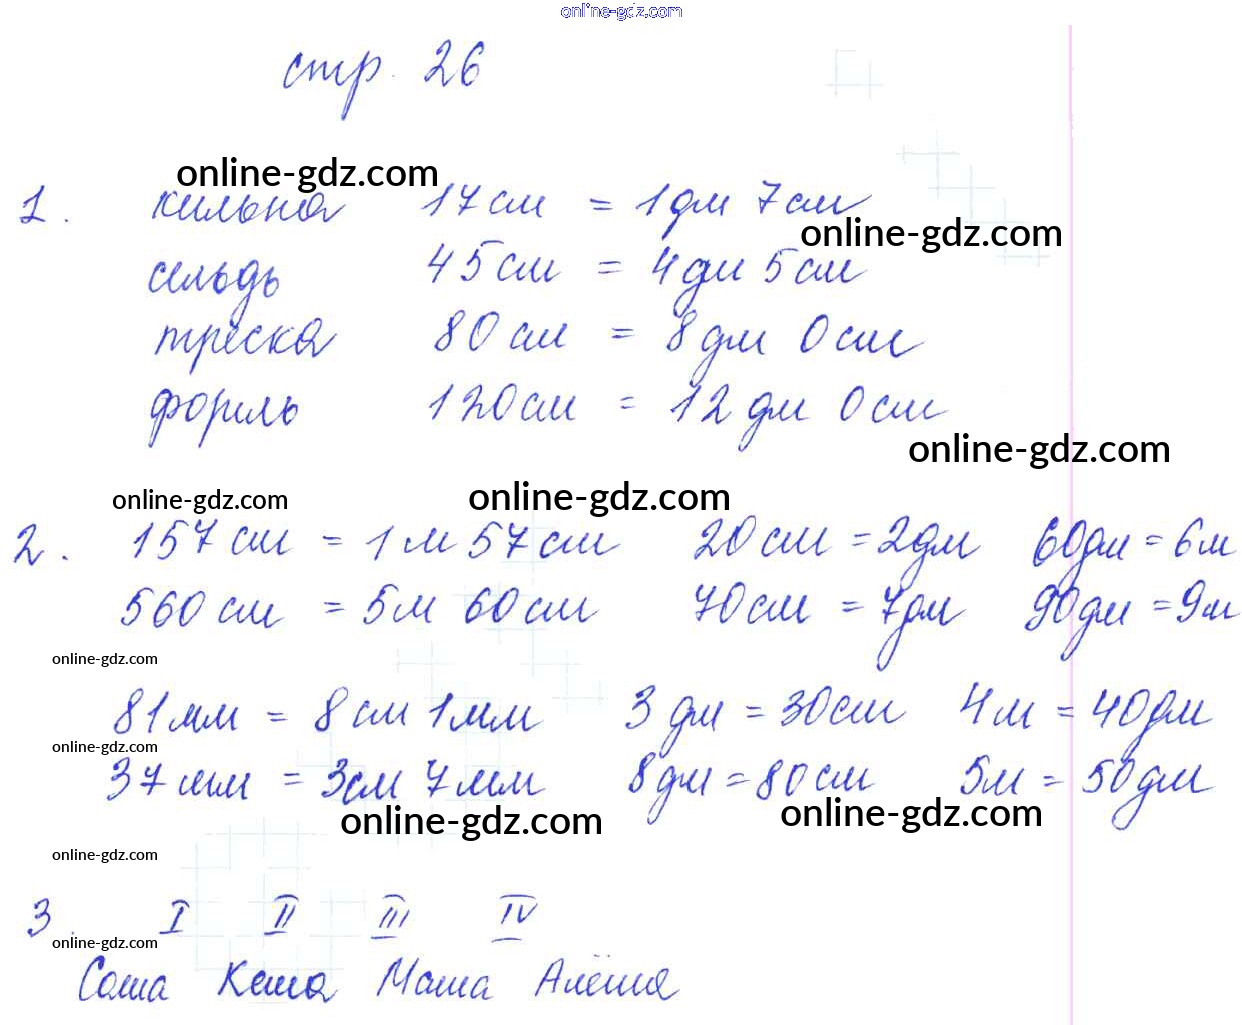 online-gdz.com
стр. 26
online-gdz.com
1. килька 17см = 1дм 7см
online-gdz.com
сельдь 45см = 4дм 5см
треска 80см = 8дм 0см
форель 120см = 12дм 0см
online-gdz.com
online-gdz.com online-gdz.com
2. 157см = 1м 57см 20см = 2дм 60дм = 6м
560см = 5м 60см 70см = 7дм 90дм = 9м
online-gdz.com
81мм = 8см 1мм 3дм = 30см 4м = 40дм
online-gdz.com
37мм = 3см 7мм 8дм = 80см 5м = 50дм
online-gdz.com online-gdz.com
online-gdz.com
3. I II III IV
online-gdz.com
Саша Кеша Маша Алёша